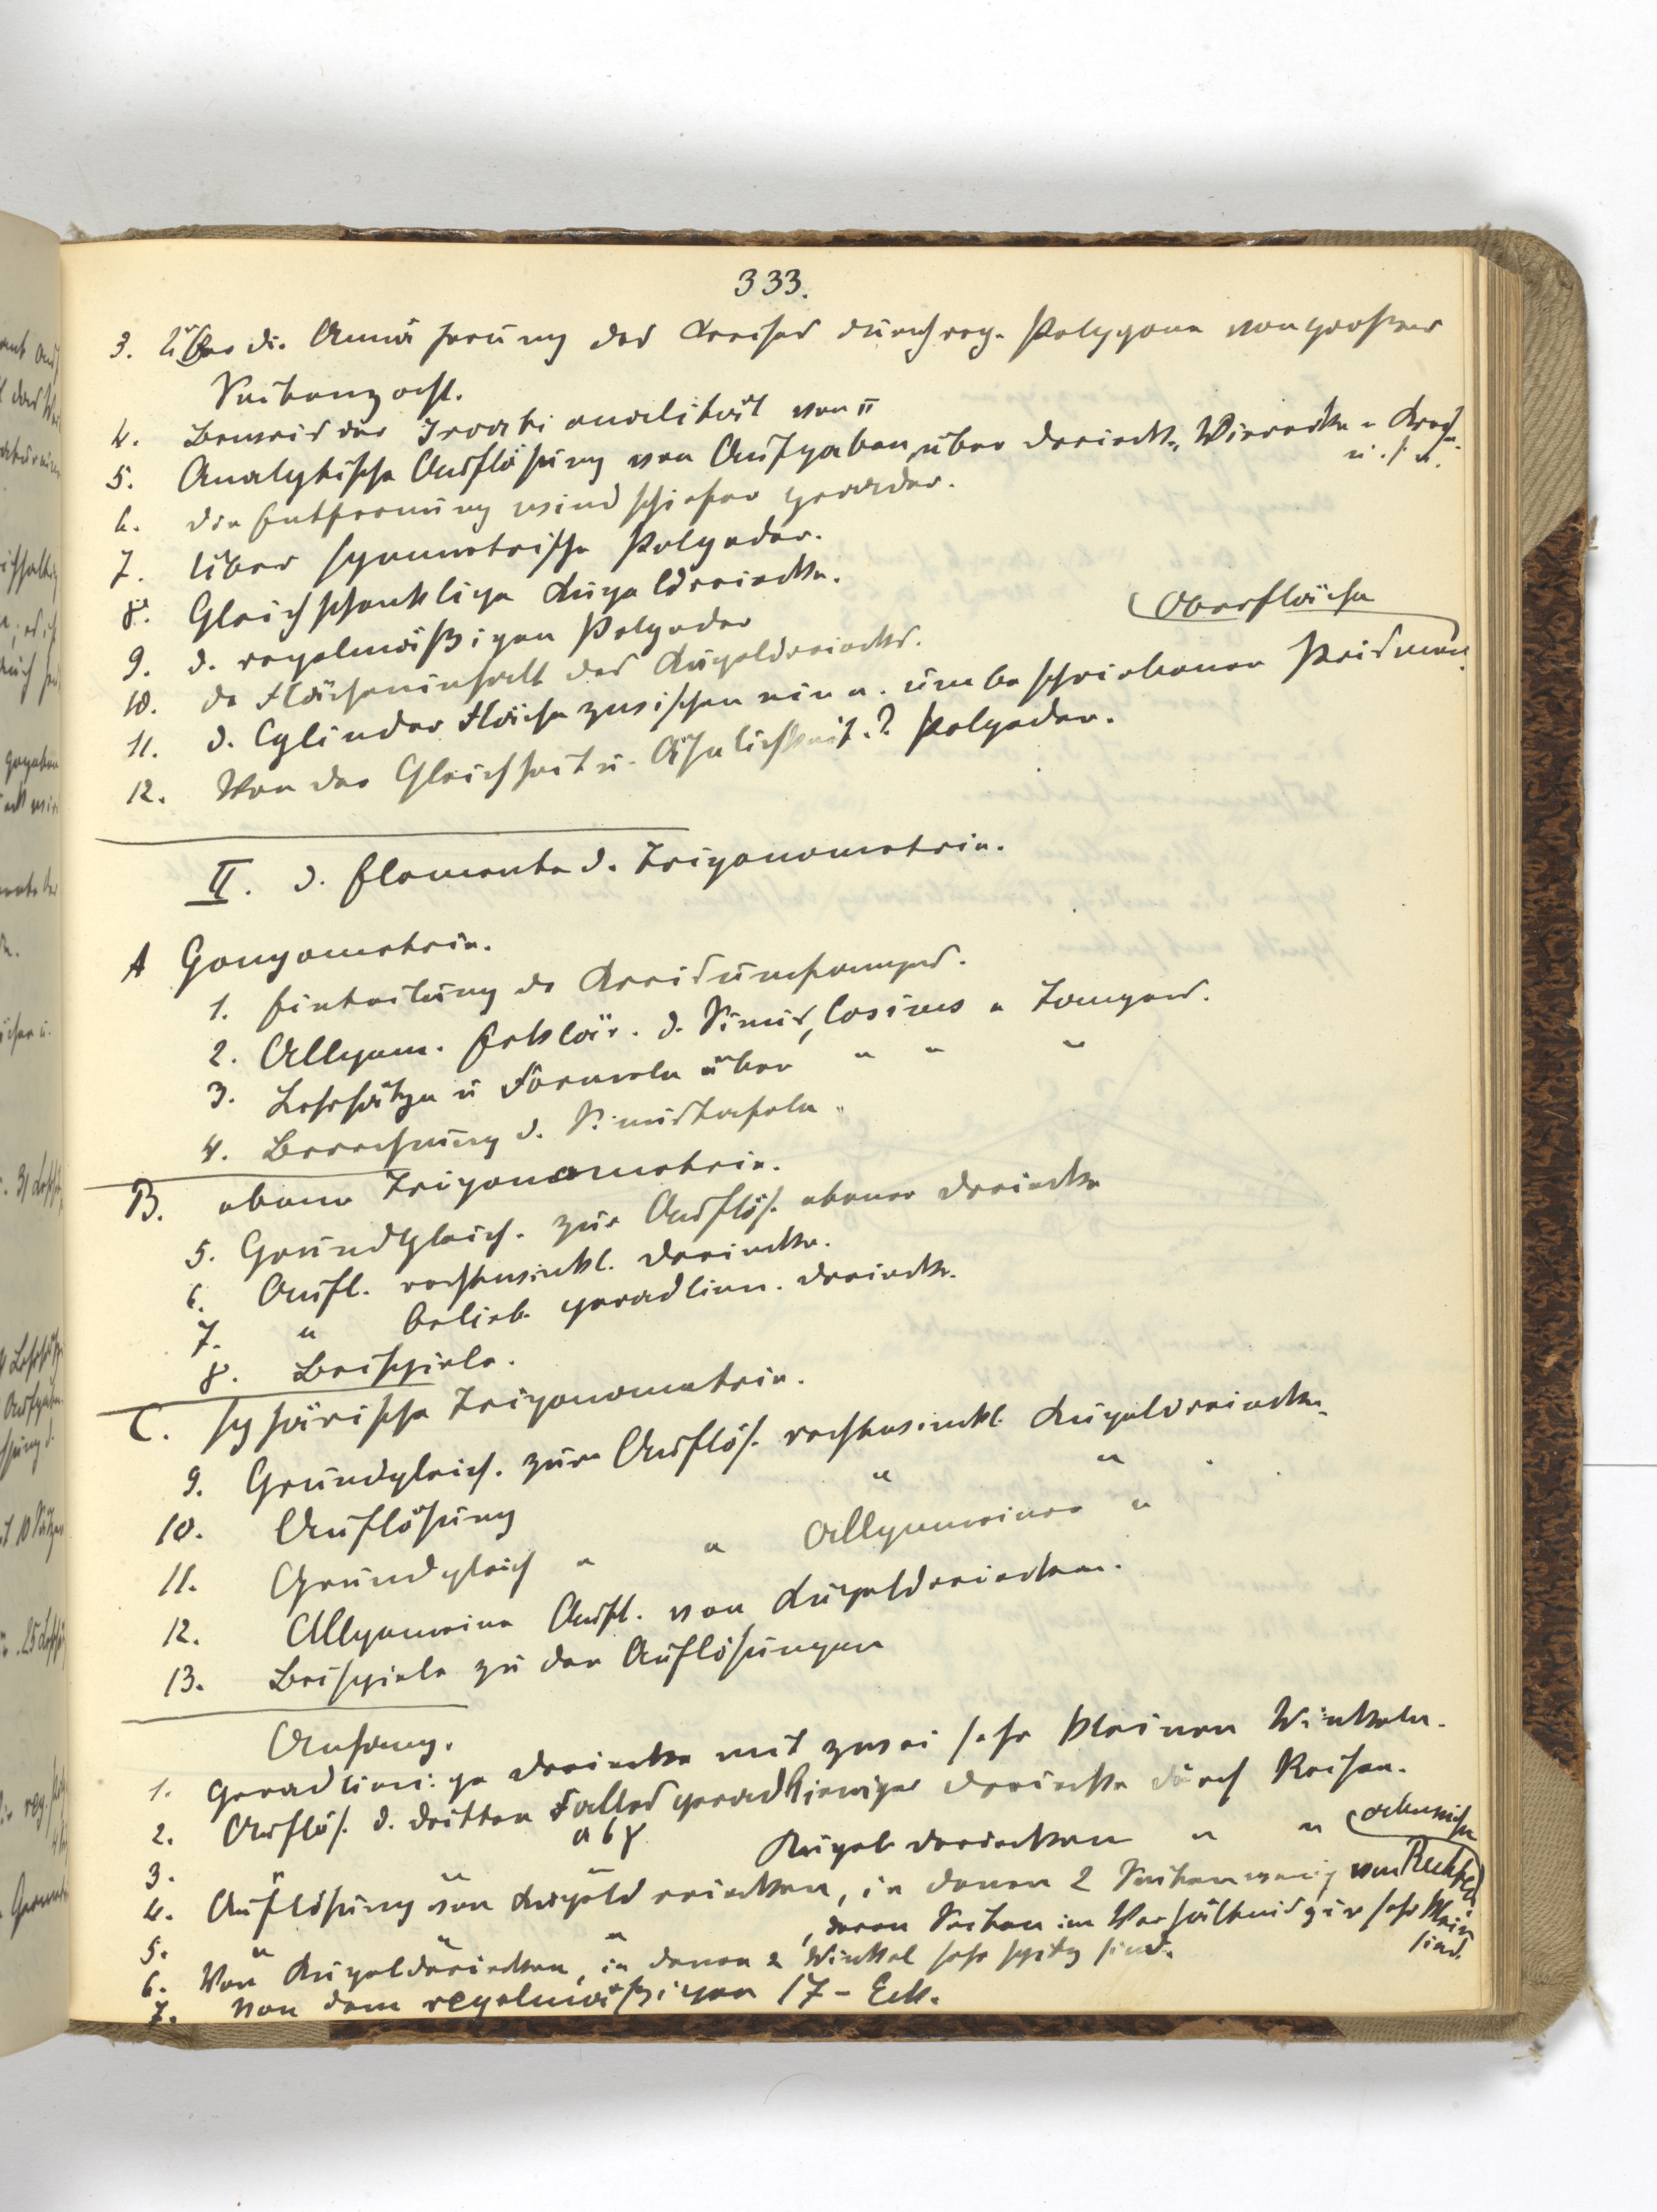 333.
3. Über di. Annäherung des Kreises durch reg. Polygone von großer
Seitenzahl.
4. Beweis der Irrationalität von π
5. Analytische Auflösung von Aufgaben über Dreiecke, Vierecke u Kreise
u. s. w.
6. Die Entfernung windschiefer Gerader.
7. Über symmetrische Polyeder.
8. Gleichschenklige Kugeldreiecke.
9. d. regelmäßigen Polyeder
10. De Flächeninhalt des Kugeldreiecks.
Oberfläche
11. d. Cylinder Fläche zwischen ein u. umbeschriebener Prismen.
12. Von der Gleichheit u. Ähnlichkeit.? Polyeder.
II. d. Elemente d. Trigonometrie.
A Gonyometrie.
1. Einteilung de Kreisumfanges.
2. Allgem. Erklär. d. Sinus, Cosinus u Tangens.
3. Lehrsätze u Formeln über " " "
4. Berechnung d. Sinustafeln.
B. ebene Trigonometrie.
5. Grundgleich. zur Auflös. ebener Dreiecke
6. Aufl. rechtwinkl. Dreiecke.
7. " belieb. geradlien. Dreiecke.
8. Beispiele.
C. sphärische Trigonometrie.
9. Grundgleich. zur Auflös. rechtwinkl. Kugeldreiecke.
10. Auflösung " "
11. Grundgleich " " Allgemeiner "
12. Allgemeine Aufl. von Kugeldreiecken.
13. Beispiele zu den Auflösungen
Anhang.
1. Geradlinige Dreiecke mit zwei sehr kleinen Winkeln.
2. Auflös. d. dritten Falles geradliniger Dreiecke durch Reihen.
a b γ
3. " " " Kugeldreiecken " "
4. Auflösung von Kugeldreiecken, in denen 2 Seiten wenig von Rechten
abweichen
5. " " " , deren Seiten im Verhältnis zur sehr klein
sind.
6. Von Kugeldreiecken, in denen 2 Winkel sehr spitz sind.
7. Von dem regelmäßigen 17-Eck.